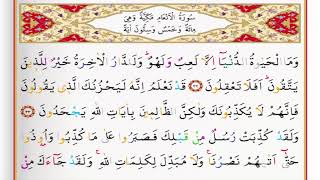 سُورَةُ الْأَنْعَامِ مَكِّيَّةٌ وَهِيَ
مِائَةٌ وَخَمْسٌ وَسِتُّونَ آيَةً
وَمَا الْحَيٰوةُ الدُّنْيَٓا اِلَّا لَعِبٌ وَلَهْوٌ وَلَلدَّارُ الْاٰخِرَةُ خَيْرٌ لِلَّذِينَ
يَتَّقُونَ اَفَلَا تَعْقِلُونَ ٣٢ قَدْ نَعْلَمُ اِنَّهُ لَيَحْزُنُكَ الَّذِي يَقُولُونَ
فَاِنَّهُمْ لَا يُكَذِّبُونَكَ وَلٰكِنَّ الظَّالِمِينَ بِاٰيَاتِ اللّٰهِ يَجْحَدُونَ ٣٣
وَلَقَدْ كُذِّبَتْ رُسُلٌ مِنْ قَبْلِكَ فَصَبَرُوا عَلٰى مَا كُذِّبُوا وَاُوذُوا
حَتّٰٓى اَتٰيهُمْ نَصْرُنَا وَلَا مُبَدِّلَ لِكَلِمَاتِ اللّٰهِ وَلَقَدْ جَٓاءَكَ مِنْ